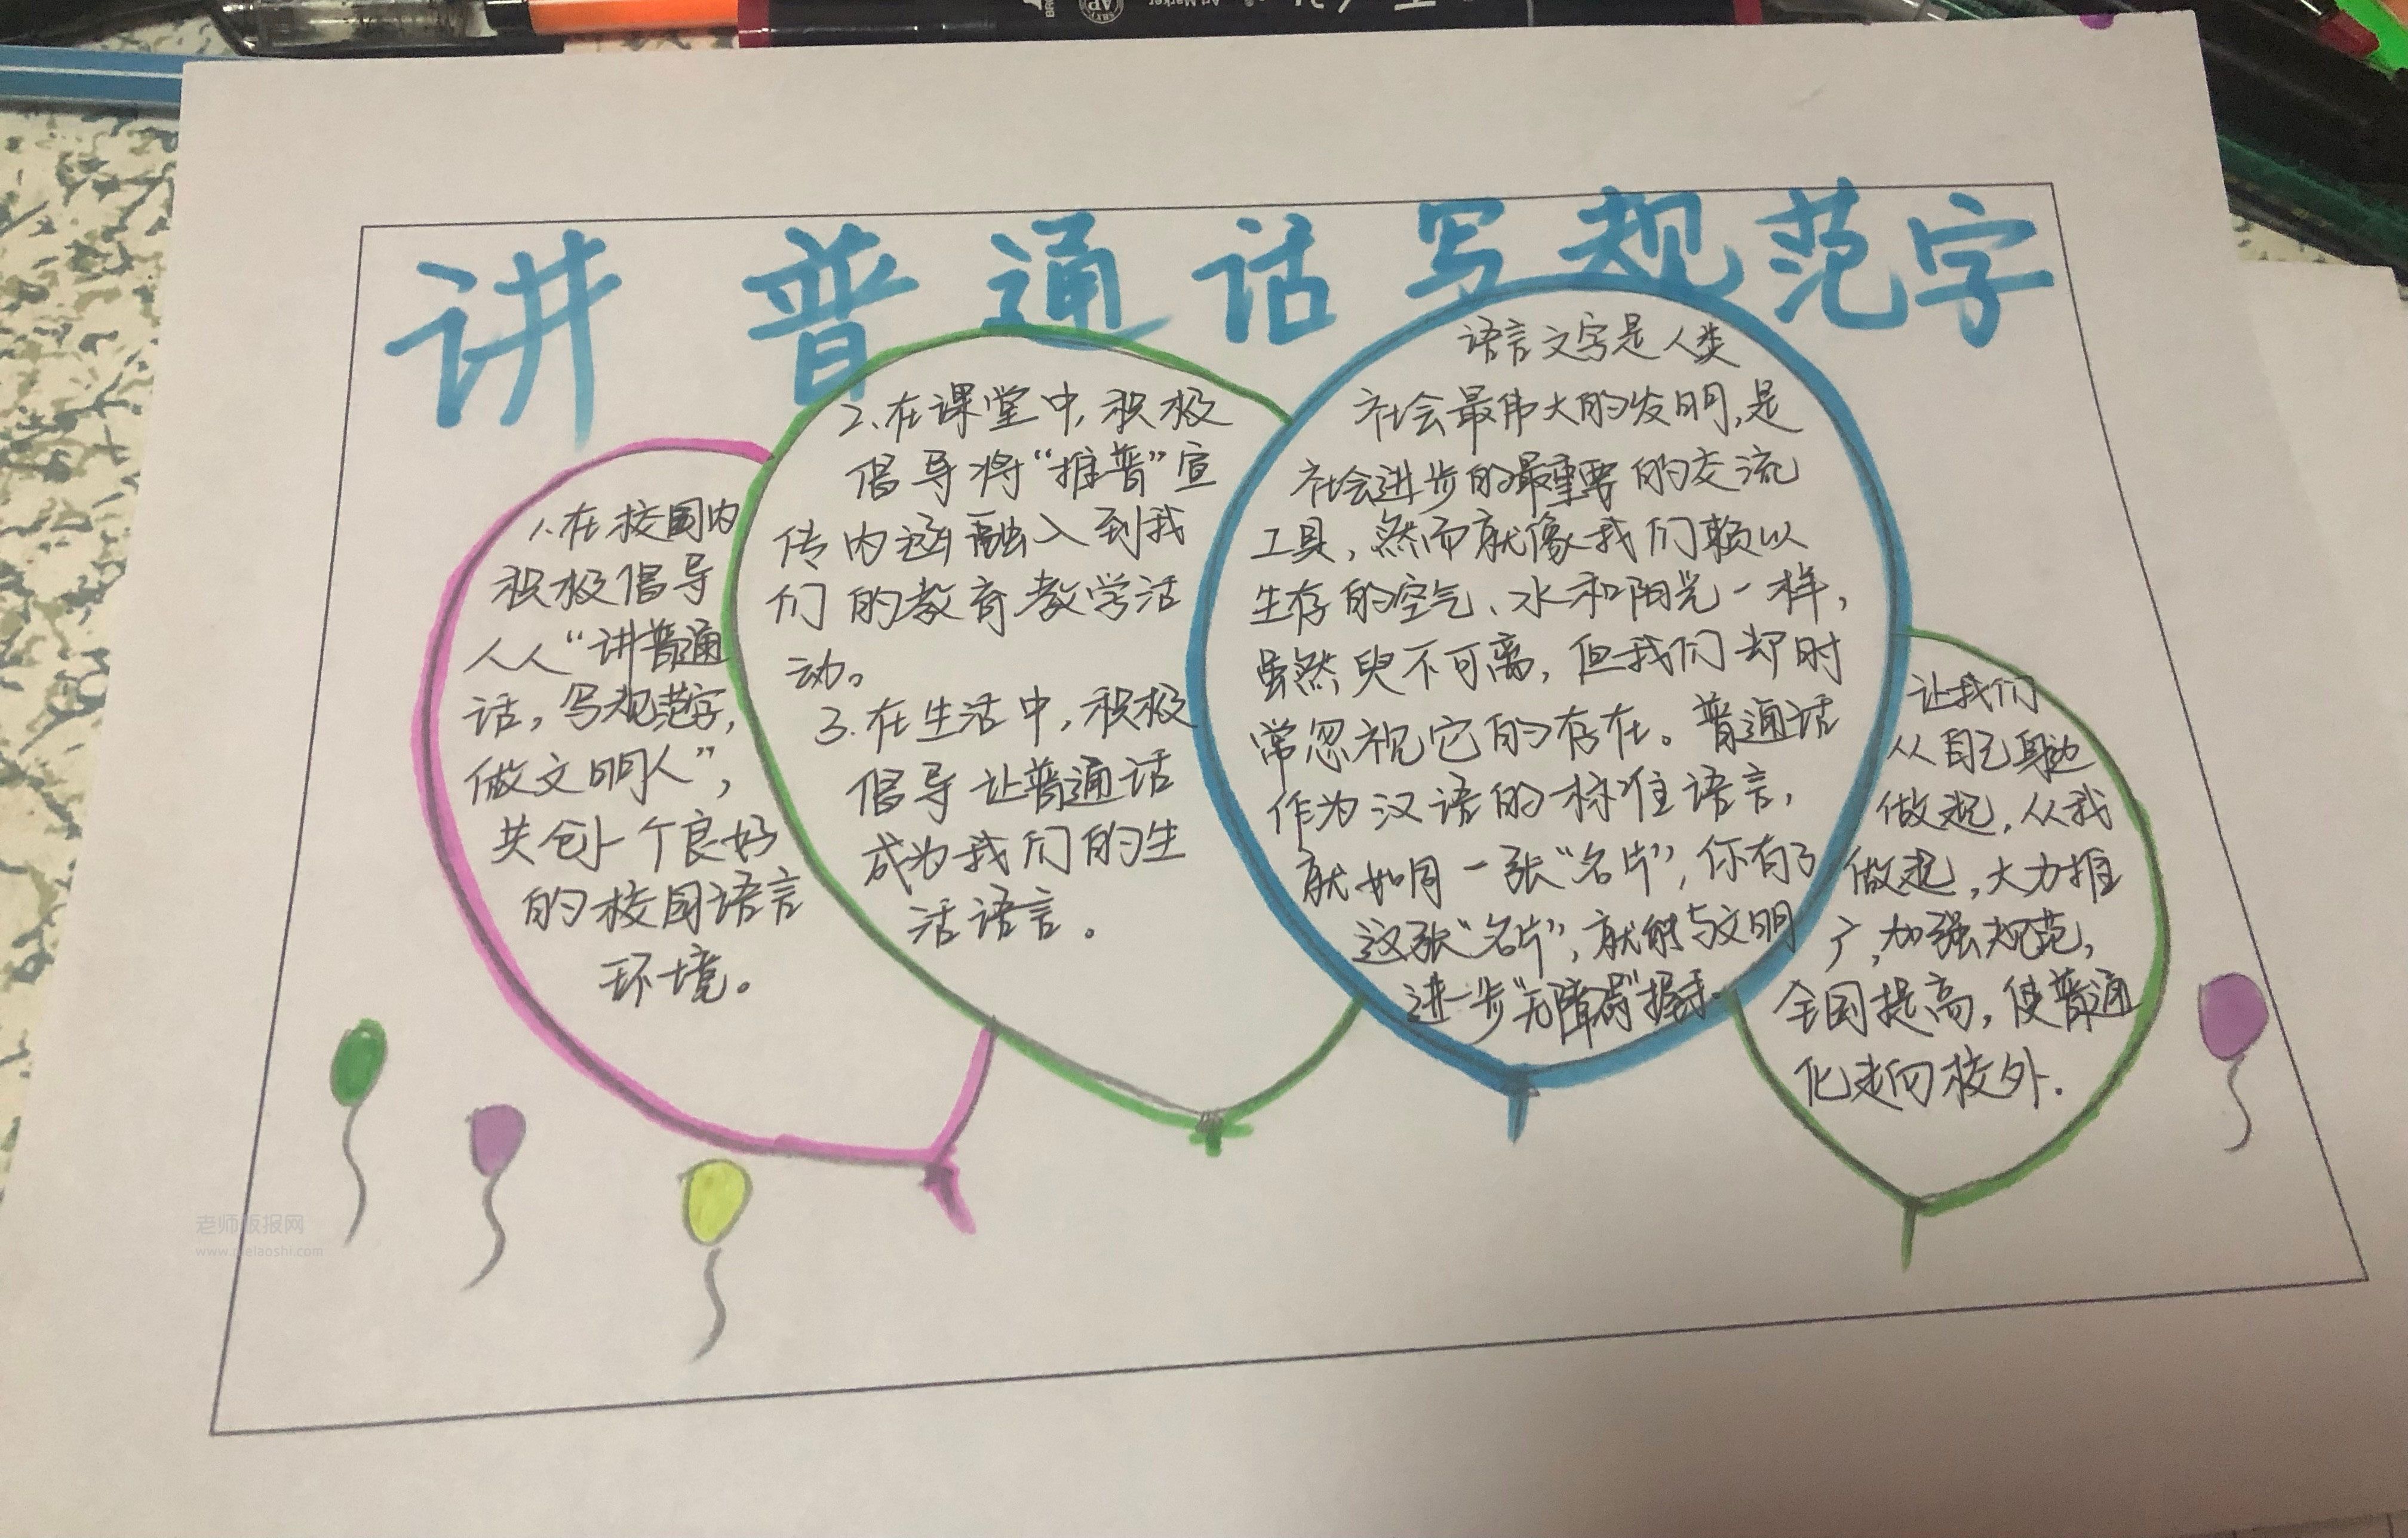 讲普通话写规范字
1.在校园内
积极倡导
人人“讲普通
话，写规范字，
做文明人”，
共创一个良好
的校园语言
环境。
2、在课堂中，积极
倡导将“推普”宣
传内涵融入到我
们的教育教学活
动。
3.在生活中，积极
倡导让普通话
成为我们的生
活语言。
语言文字是人类
社会最伟大的发明，是
社会进步的最重要的交流
工具，然而就像我们赖以
生存的空气、水和阳光一样，
虽然须臾不可离，但我们却时
常忽视它的存在。普通话
作为汉语的标准语言，
就如同一张“名片”，你有了
这张“名片”，就能与文明
进一步“无障碍”握手.
让我们
从自己身边
做起，从我
做起，大力推
广，加强规范，
全国提高，使普通
化走向校外.
老师版报网